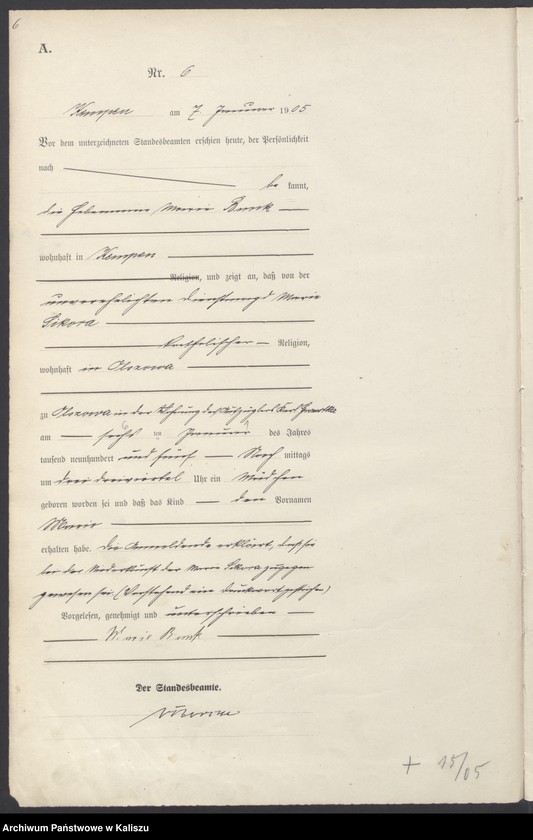 6
A.
Nr. 6
Kempen am 7 Januar 1905
Vor dem unterzeichneten Standesbeamten erschien heute, der Persönlichkeit
nach
be kannt,
die Hebamme Marie Bunk
wohnhaft in Kempen
Religion, und zeigt an, daß von der
unverehelichten Dienstmagd Marie
Sikora
katholischer Religion,
wohnhaft in Olszowa
zu Olszowa in der Wohnung des Karl
am sechsten Januar des Jahres
tausend neunhundert und fünf Nach mittags
um drei dreiviertel Uhr ein Mädchen
geboren worden sei und daß das Kind den Vornamen
Marie
erhalten habe. Die Anmeldende erklärt, daß sie
bei der Niederkunft der Marie Sikora zugegen
gewesen sei (Vorstehend ein Druckwort gestrichen)
Vorgelesen, genehmigt und unterschrieben
Marie Bunk
Der Standesbeamte.
+ 15/05
Archiwum Państwowe w Kaliszu